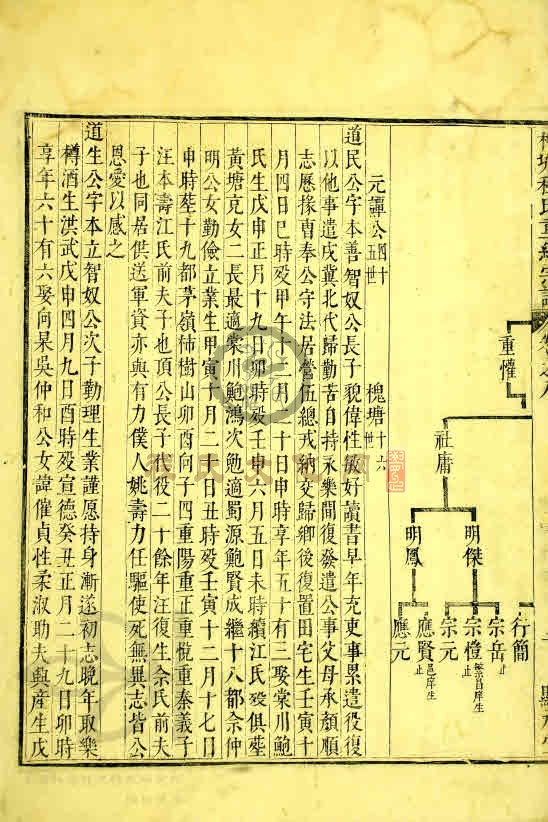 重懽
社庸
明傑
明鳳
行簡
宗岳止
宗禮繁昌庠生止
宗元
應賢邑庠生止
應元
元譚公四十五世
槐塘十六世
道民公字本善智奴公長子貌偉性敏好讀書早年充吏事累遣役復
以他事遣戍冀北代歸勤苦自持永樂間復發遣公事父母承顏順
志歷掾南奉公守法居營伍總戎納交歸鄉後復置田宅生壬寅十
月四日巳時歿甲午十二月二十日申時享年五十有三娶棠川鮑
氏生戊申正月十九日卯時歿壬申六月五日未時續江氏歿俱塟
黃塘克女二長最適棠川鮑鴻次勉適蜀源鮑賢成繼十八都余仲
明公女勤儉立業生甲寅十月二十日丑時歿壬寅十二月十七日
申時塟十九都茅嶺柿樹山卯酉向子四重陽重正重悅重泰義子
汪本壽江氏前夫子也頂公長子代役二十餘年汪復生余氏前夫
子也同居供送軍資亦與有力僕人姚壽力任驅使死無異志皆公
恩愛以感之
道生公字本立智奴公次子勤理生業謹愿持身漸遂初志晚年取樂
樽酒生洪武戊申四月九日酉時歿宣德癸丑正月二十九日卯時
享年六十有六娶向杲吳仲和公女諱催貞性柔淑助夫興產生戊